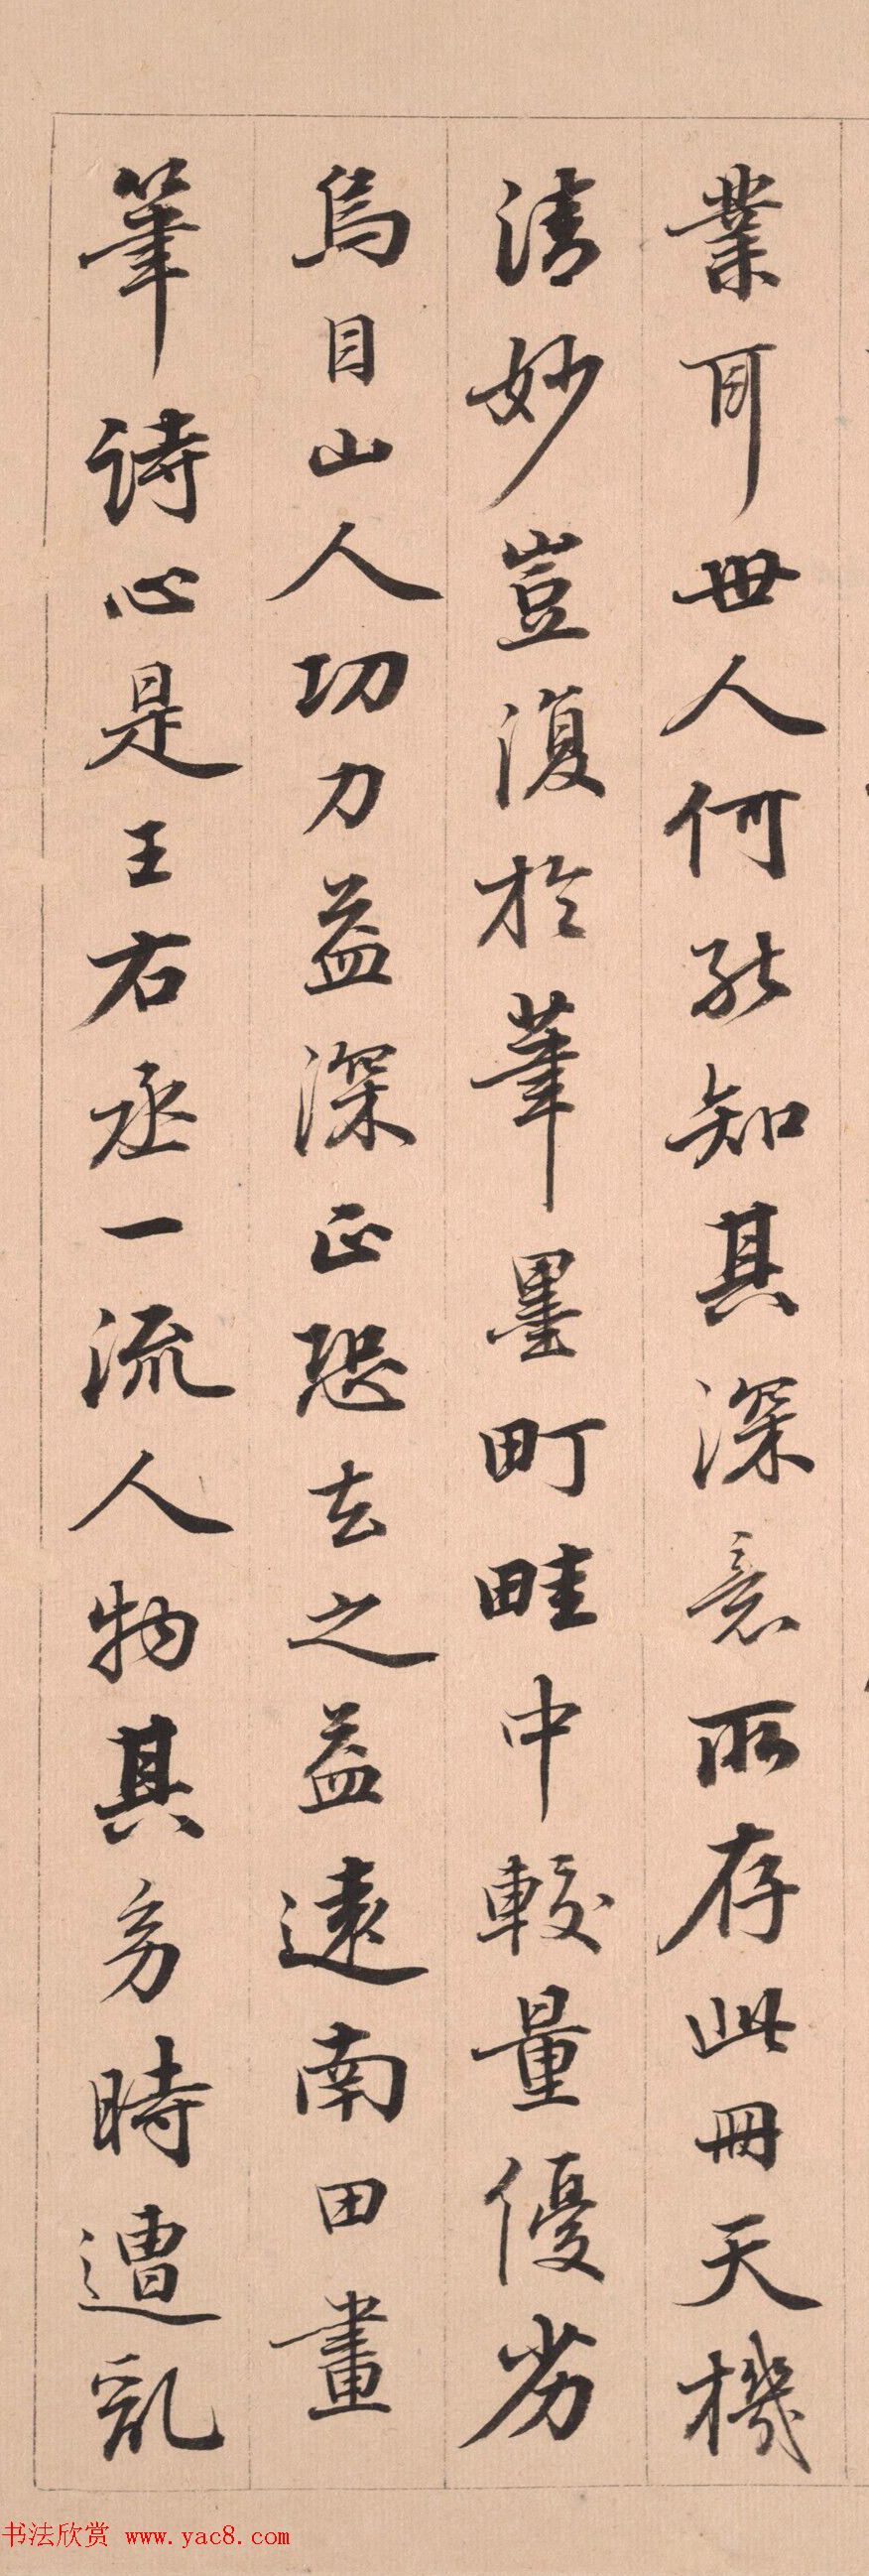 業耳世人何能知其深意所存此冊天機
清妙豈復於筆墨町畦中較量優劣
烏目山人功力益深正恐去之益遠南田畫
筆詩心是王右丞一流人物其幼時遭亂
书法欣赏 www.yac8.com